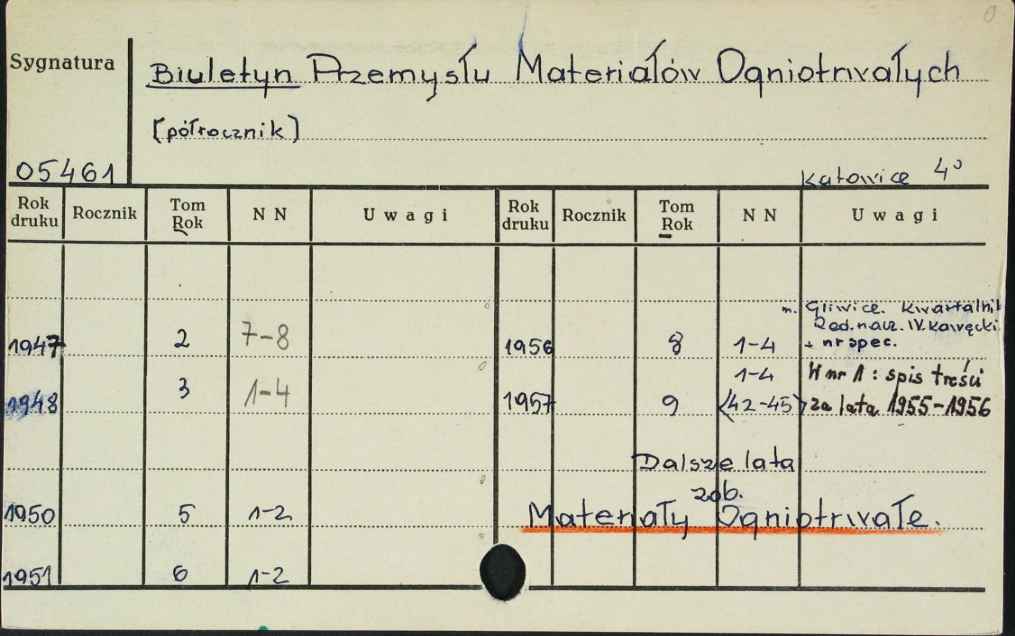 0
Sygnatura
Biuletyn Przemysłu Materiałów Ogniotrwałych
[półrocznik]
05461
Katowice 4º
Rok druku Rocznik Tom Rok N N Uwagi Rok druku Rocznik Tom Rok N N Uwagi
1947 2 7-8
1948 3 1-4
1950 5 1-2
1951 6 1-2
m. Gliwice. Kwartalnik
Red. nacz. W. Kawęcki
1956 8 1-4 + nr spec.
1-4 W nr 1: spis treści
1957 9 <42-45> za lata 1955-1956
Dalsze lata
zob.
Materiały Ogniotrwałe.